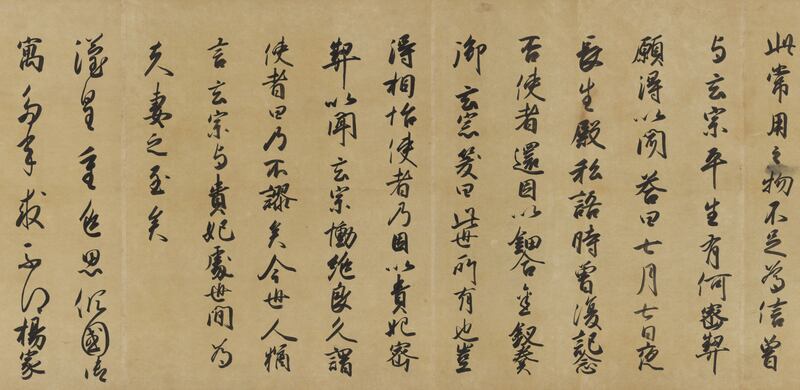 此常用之物不足為信曾
与玄宗平生有何密契
願得以聞答曰七月七日夜
長生殿私語時曾復記念
否使者還因以鈿合金釵奏
御玄宗笑曰此世所有也豈
得相怡使者乃因以貴妃密
契以聞玄宗慟絕良久謂
使者曰乃不謬矣今世人猶
言玄宗与貴妃處世間為
夫妻之至矣
漢皇重色思傾國御
寓多年求不得楊家